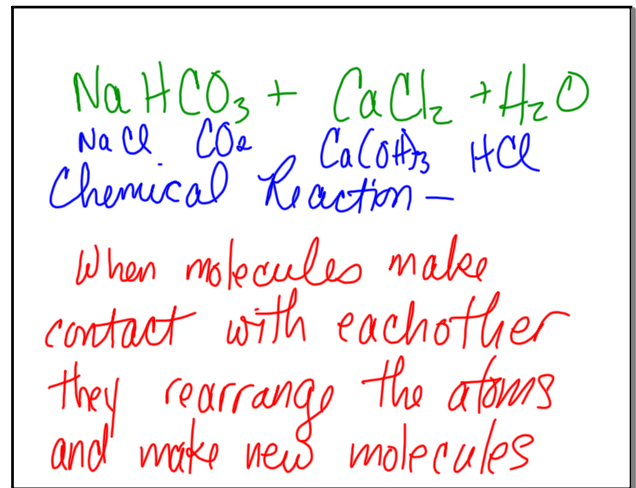 NaHCO₃ + CaCl₂ + H₂O
NaCl CO₂ Ca(OH)₃ HCl
Chemical Reaction –
When molecules make
contact with eachother
they rearrange the atoms
and make new molecules